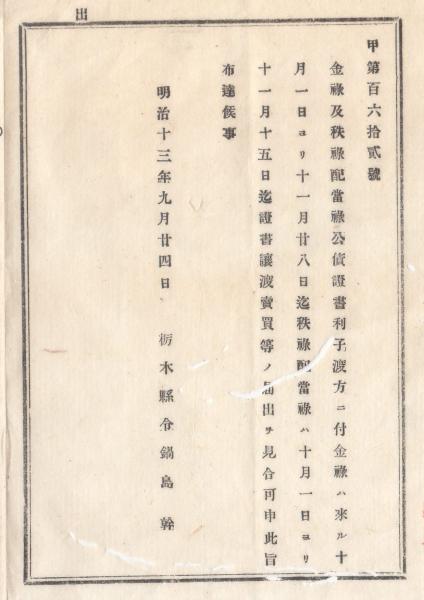 出
甲第百六拾貳號
金祿及秩祿配當祿公債證書利子渡方ニ付金祿ハ來ル十
月一日ヨリ十一月廿八日迄秩祿配當祿ハ十月一日ヨリ
十一月十五日迄證書讓渡賣買等ノ屆出ヲ見合可申此旨
布達候事
明治十三年九月廿四日　栃木縣令鍋島幹